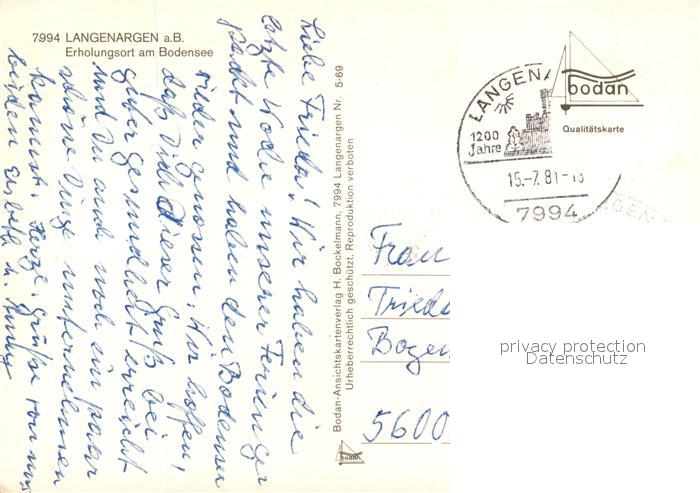 7994 LANGENARGEN a.B.
Erholungsort am Bodensee
Liebe Frieda! Wir haben die
letzte Woche unserer Ferien ge
packt und haben den Bodensee
wieder genossen. Wir hoffen,
daß Dich dieser Gruß bei
guter Gesundheit erreicht
und Du auch noch ein paar
schöne Dinge unternehmen
kannst. Herzl. Grüße von uns
beiden
Bodan-Ansichtskartenverlag H. Bockelmann, 7994 Langenargen Nr. 5-69
Urheberrechtlich geschützt. Reproduktion verboten
bodan
bodan
Qualitätskarte
LANGEN
1200
Jahre
15.-7.81-
7994
NGEN
Frau
Frieda
5600
privacy protection
Datenschutz